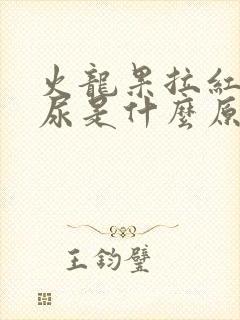 火龍果拉紅
尿是什麼原
王鈞璧